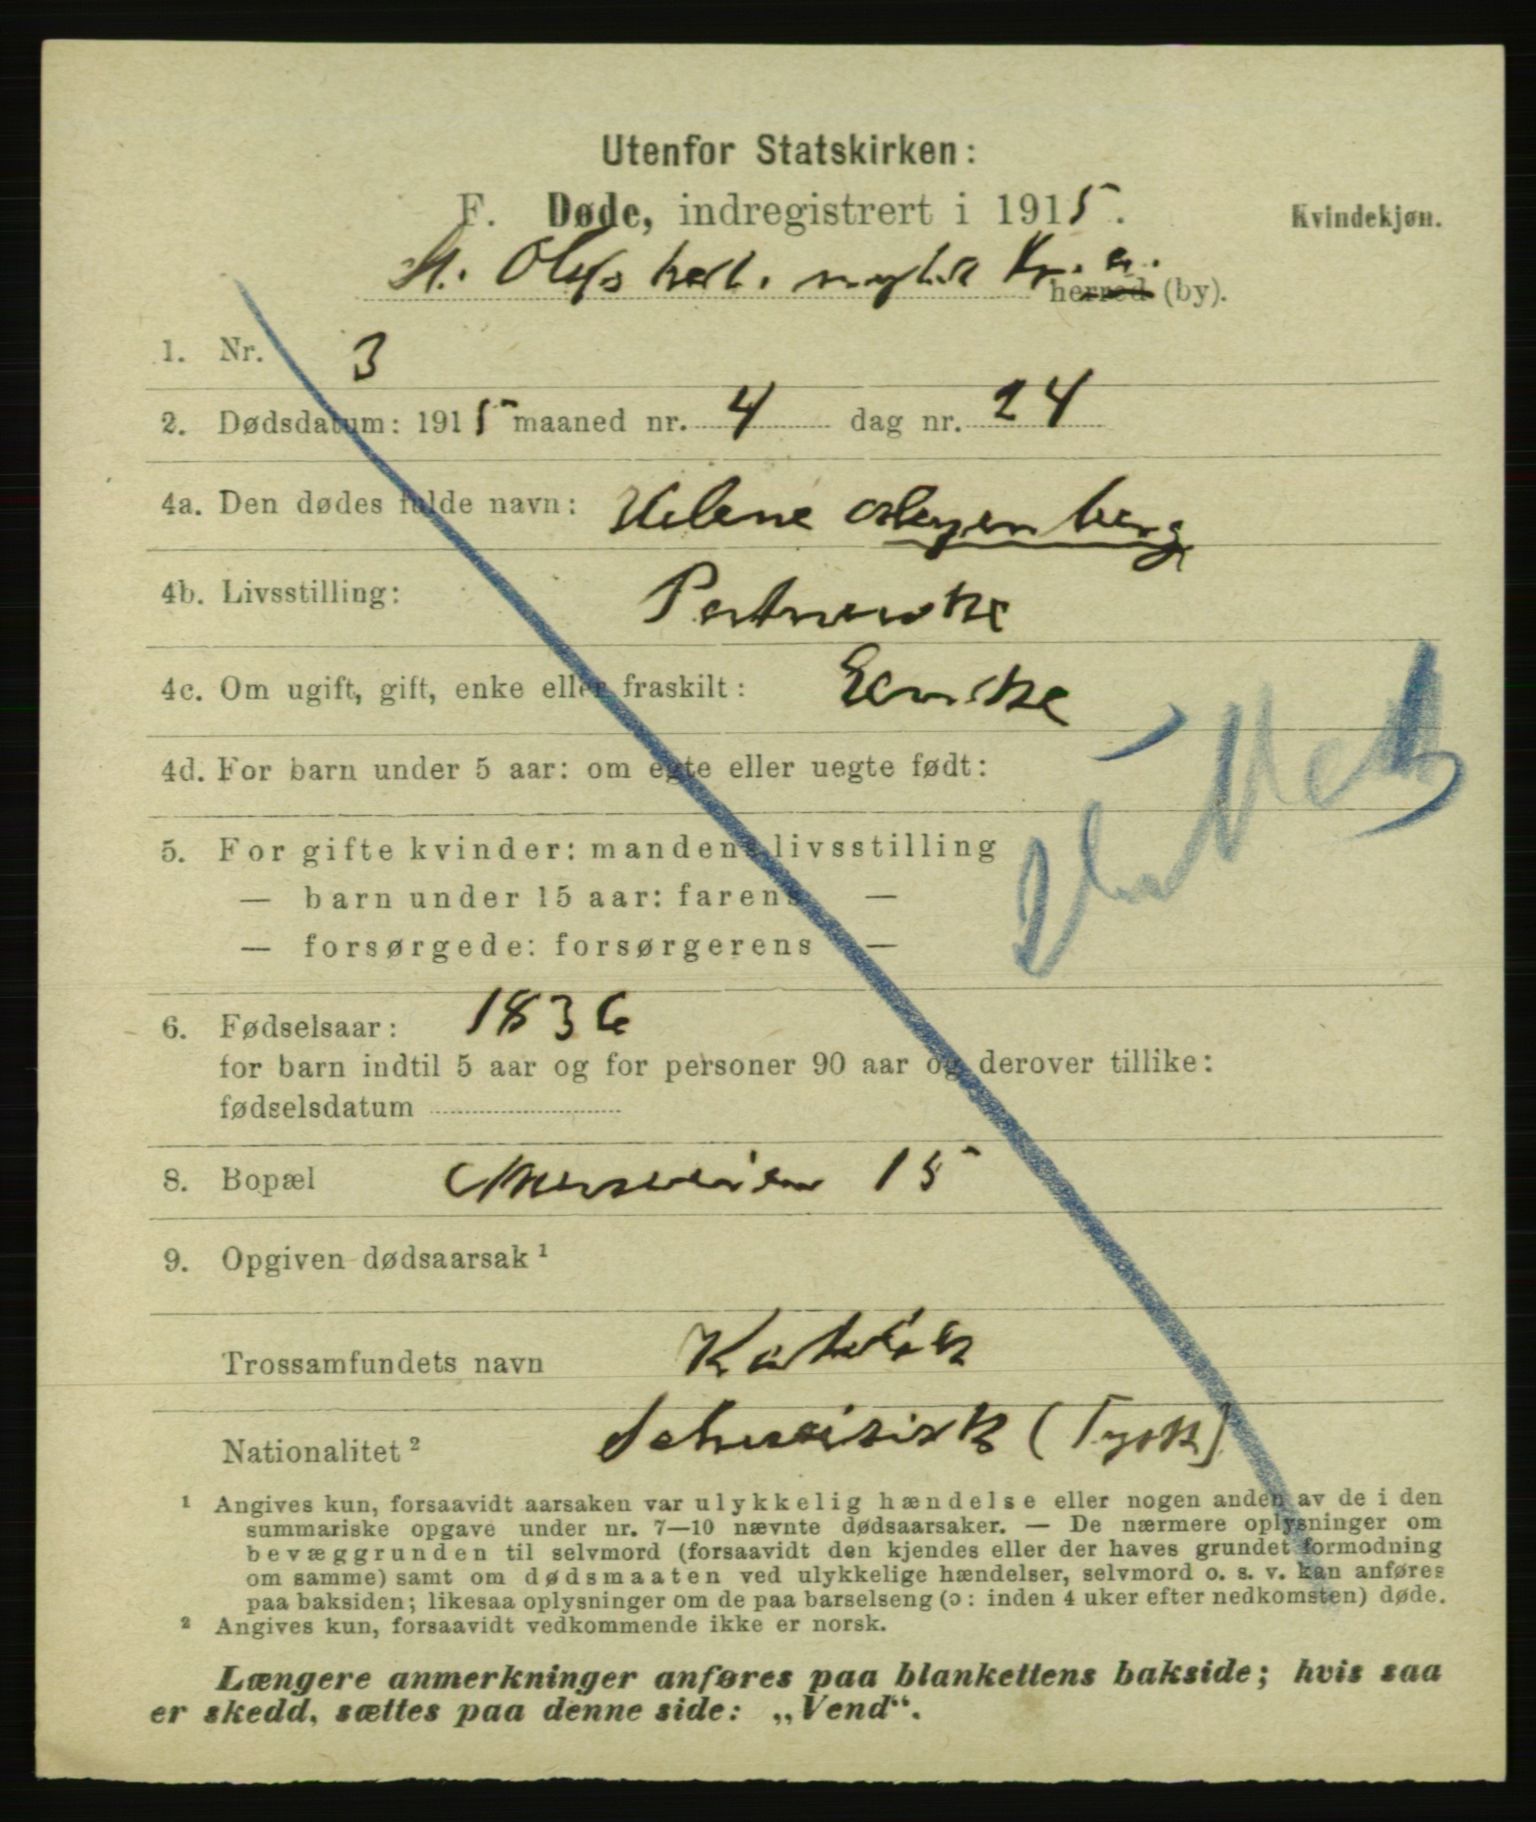 Utenfor Statskirken:
F. Døde, indregistrert i 1915. Kvindekjøn.
St. Olafs kath. Kr.a.
herred (by).
1. Nr. 3
2. Dødsdatum: 1915 maaned nr. 4 dag nr. 24
4a. Den dødes fulde navn: Helene
4b. Livsstilling:
4c. Om ugift, gift, enke eller fraskilt: Enke
4d. For barn under 5 aar: om egte eller uegte født:
5. For gifte kvinder: mandens livsstilling
— barn under 15 aar: farens —
— forsørgede: forsørgerens —
6. Fødselsaar: 1836
for barn indtil 5 aar og for personer 90 aar og derover tillike:
fødselsdatum
8. Bopæl 15
9. Opgiven dødsaarsak ¹
Trossamfundets navn Katolsk
Nationalitet ² Schweizisk (Tysk)
¹ Angives kun, forsaavidt aarsaken var ulykkelig hændelse eller nogen anden av de i den
summariske opgave under nr. 7—10 nævnte dødsaarsaker. — De nærmere oplysninger om
bevæggrunden til selvmord (forsaavidt den kjendes eller der haves grundet formodning
om samme) samt om dødsmaaten ved ulykkelige hændelser, selvmord o. s. v. kan anføres
paa baksiden; likesaa oplysninger om de paa barselseng (ɔ: inden 4 uker efter nedkomsten) døde.
² Angives kun, forsaavidt vedkommende ikke er norsk.
Længere anmerkninger anføres paa blankettens bakside; hvis saa
er skedd, sættes paa denne side: „Vend“.